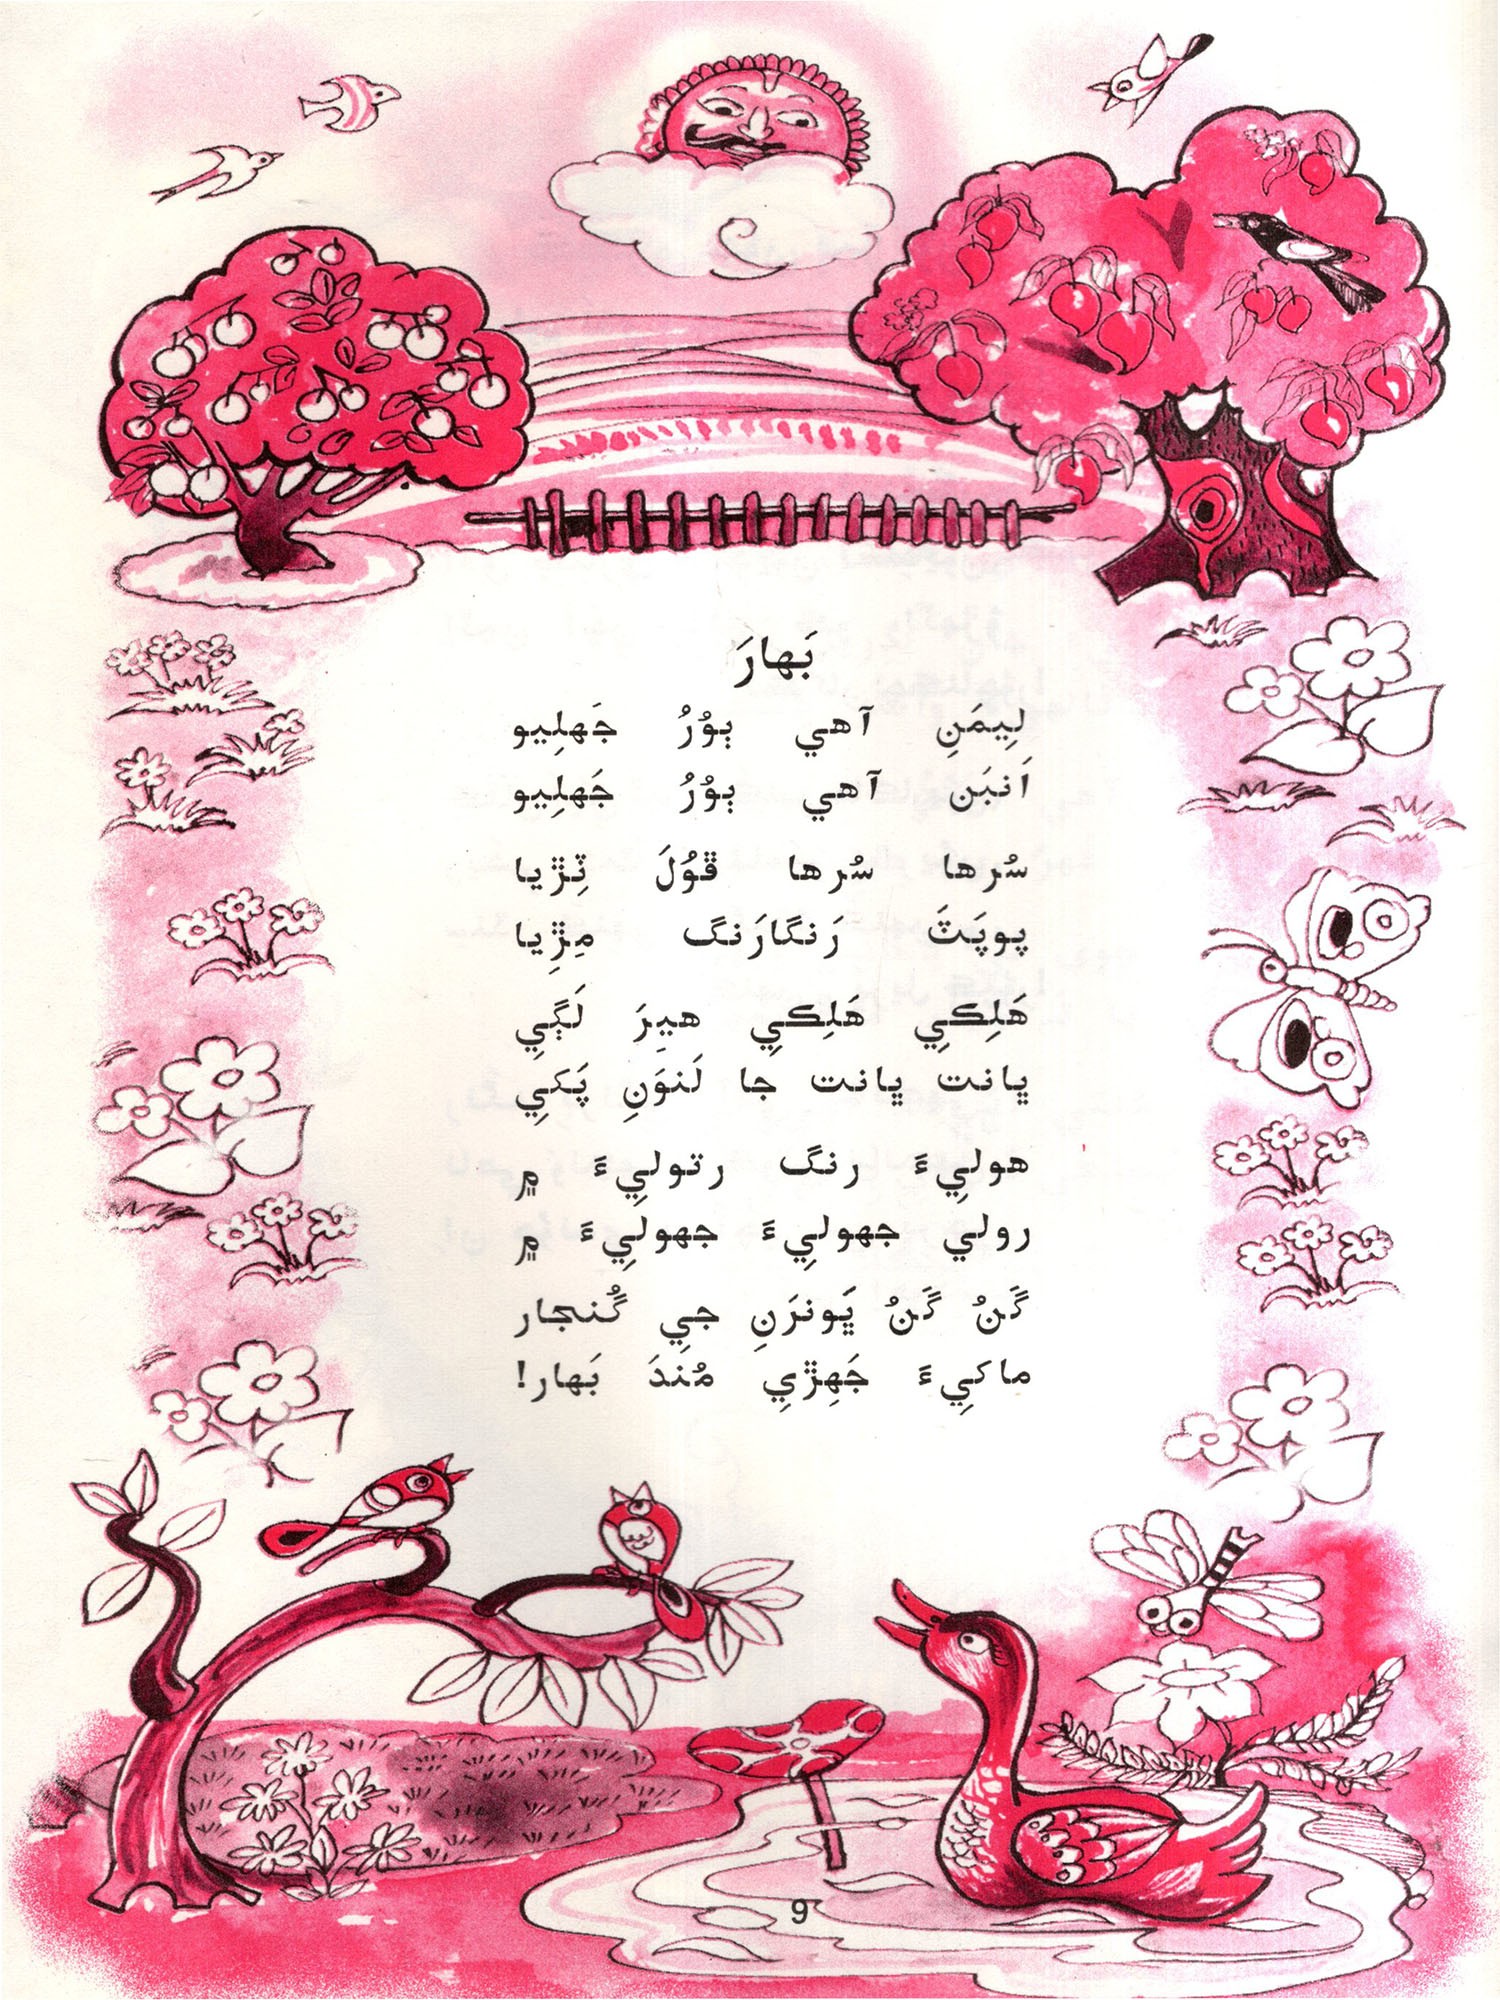 بَهارَ
لِيمَنِ آهي ٻُوْرُ جَهلِيو
اَنبَن آهي ٻُوْرُ جَهلِيو
سُرها سُرها ڦُوْلَ ٽِڙيا
پوپَٽَ رَنگارَنگ مِڙِيا
هَلِڪِي هَلِڪِي هِيرَ لَڳِي
ڀانت ڀانت جا لَنوَنِ پَکِي
هولِيءَ رنگ رتولِيءَ ۾
رولي جهولِيءَ جهولِيءَ ۾
گَنُ گَنُ ڀَونرَنِ جي گُنجار
ماکِيءَ جَهِڙِي مُندَ بَهار!
9